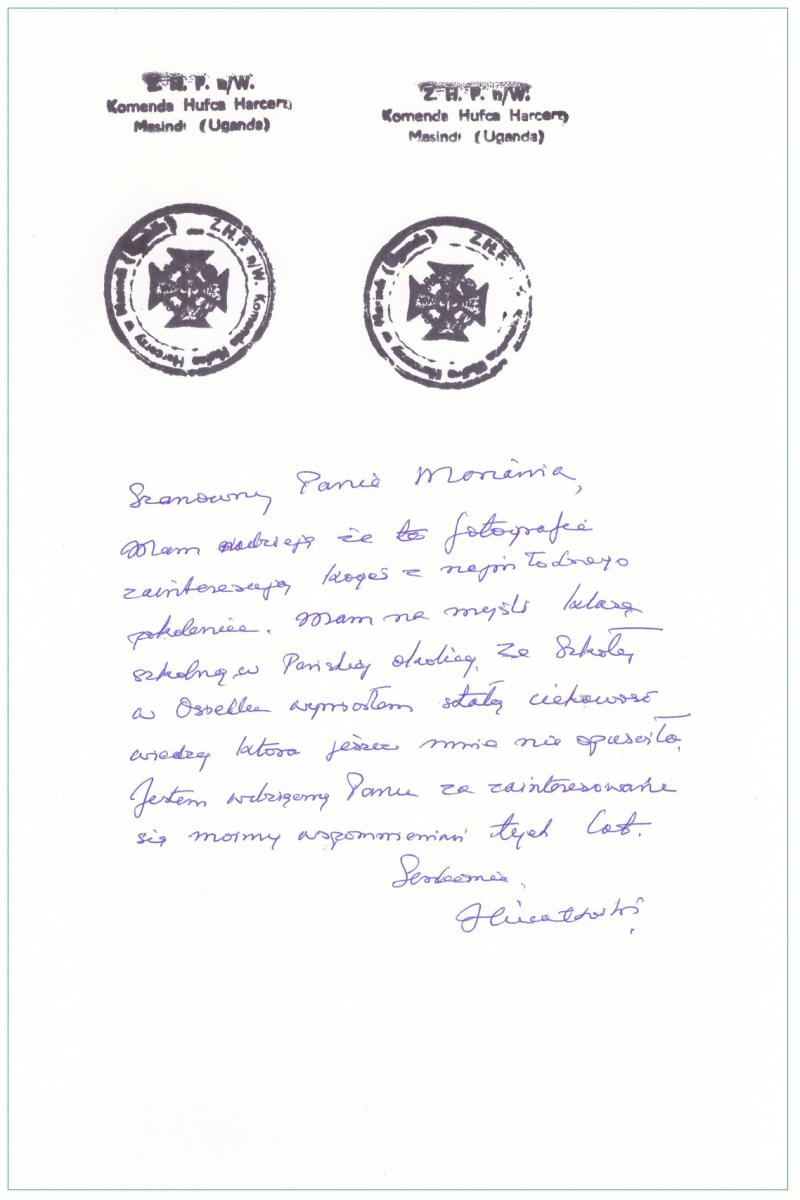 Z. H. P. n/W.
Komenda Hufca Harcerzy
Masindi (Uganda)
Z. H. P. n/W.
Komenda Hufca Harcerzy
Masindi (Uganda)
Z.H.P. n/W. Komenda Hufca Harcerzy w Masindi
Z.H.P Komenda Hufca Harcerzy w Masindi
Szanowny Panie
Mam nadzieję że te fotografie
zainteresują kogoś z najmłodszego
pokolenia. Mam na myśli klasę
szkolną w Pańskiej okolicy. Ze Szkoły
w Osiedlu wyniosłem stałą ciekawość
wiedzy która jeszcze mnie nie opuściła.
Jestem wdzięczny Panu za zainteresowanie
się moimy wspomnieniami tych lat.
Serdecznie.